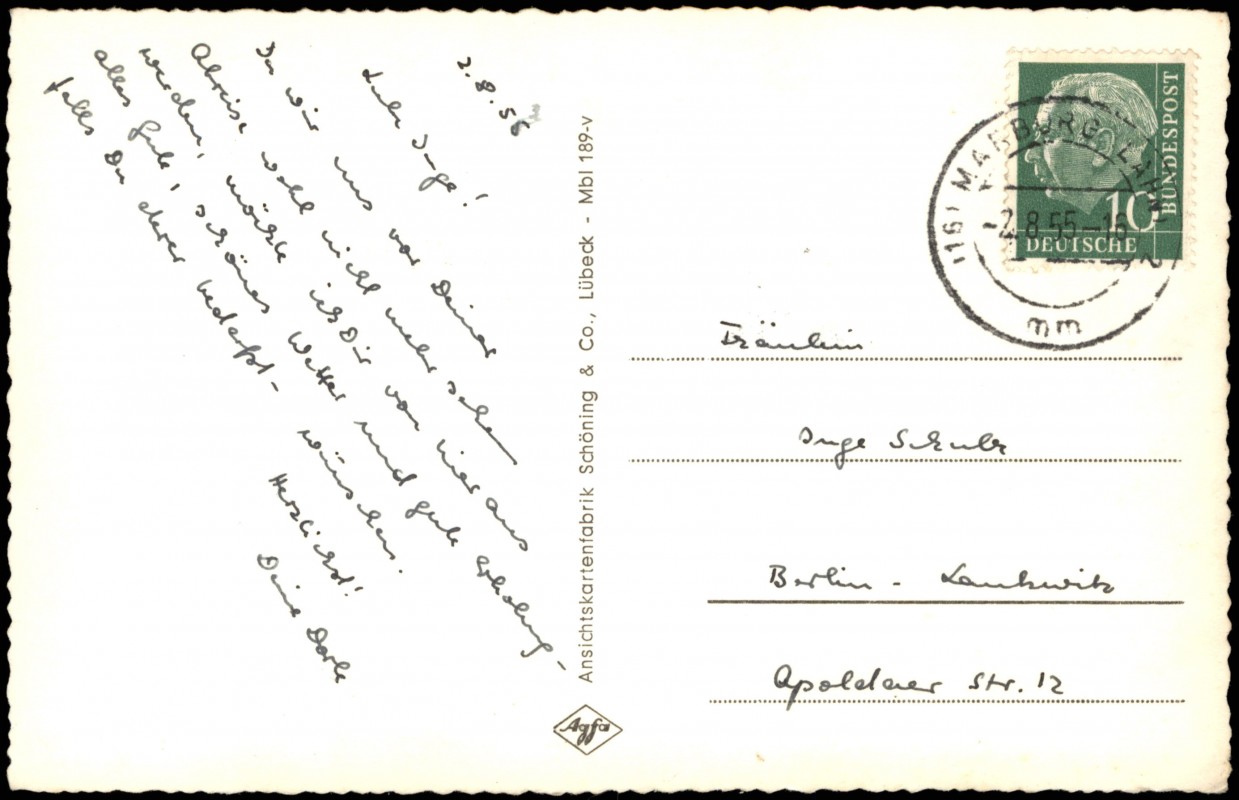 2.8.55
Liebe Inge!
Da wir uns vor Deiner
Abreise wohl nicht mehr sehen
werden, möchte ich Dir von hier aus
alles Gute, schönes Wetter und gute Erholung -
falls Du derer bedarfst - wünschen.
Herzlichst!
Deine Dorle
Ansichtskartenfabrik Schöning & Co., Lübeck - Mbl 189-v
Agfa
DEUTSCHE
BUNDESPOST
10
(16) MARBURG (LAHN) 2
-2.8.55-16
mm
Fräulein
Inge Schulz
Berlin - Lankwitz
Apoldaer Str. 12